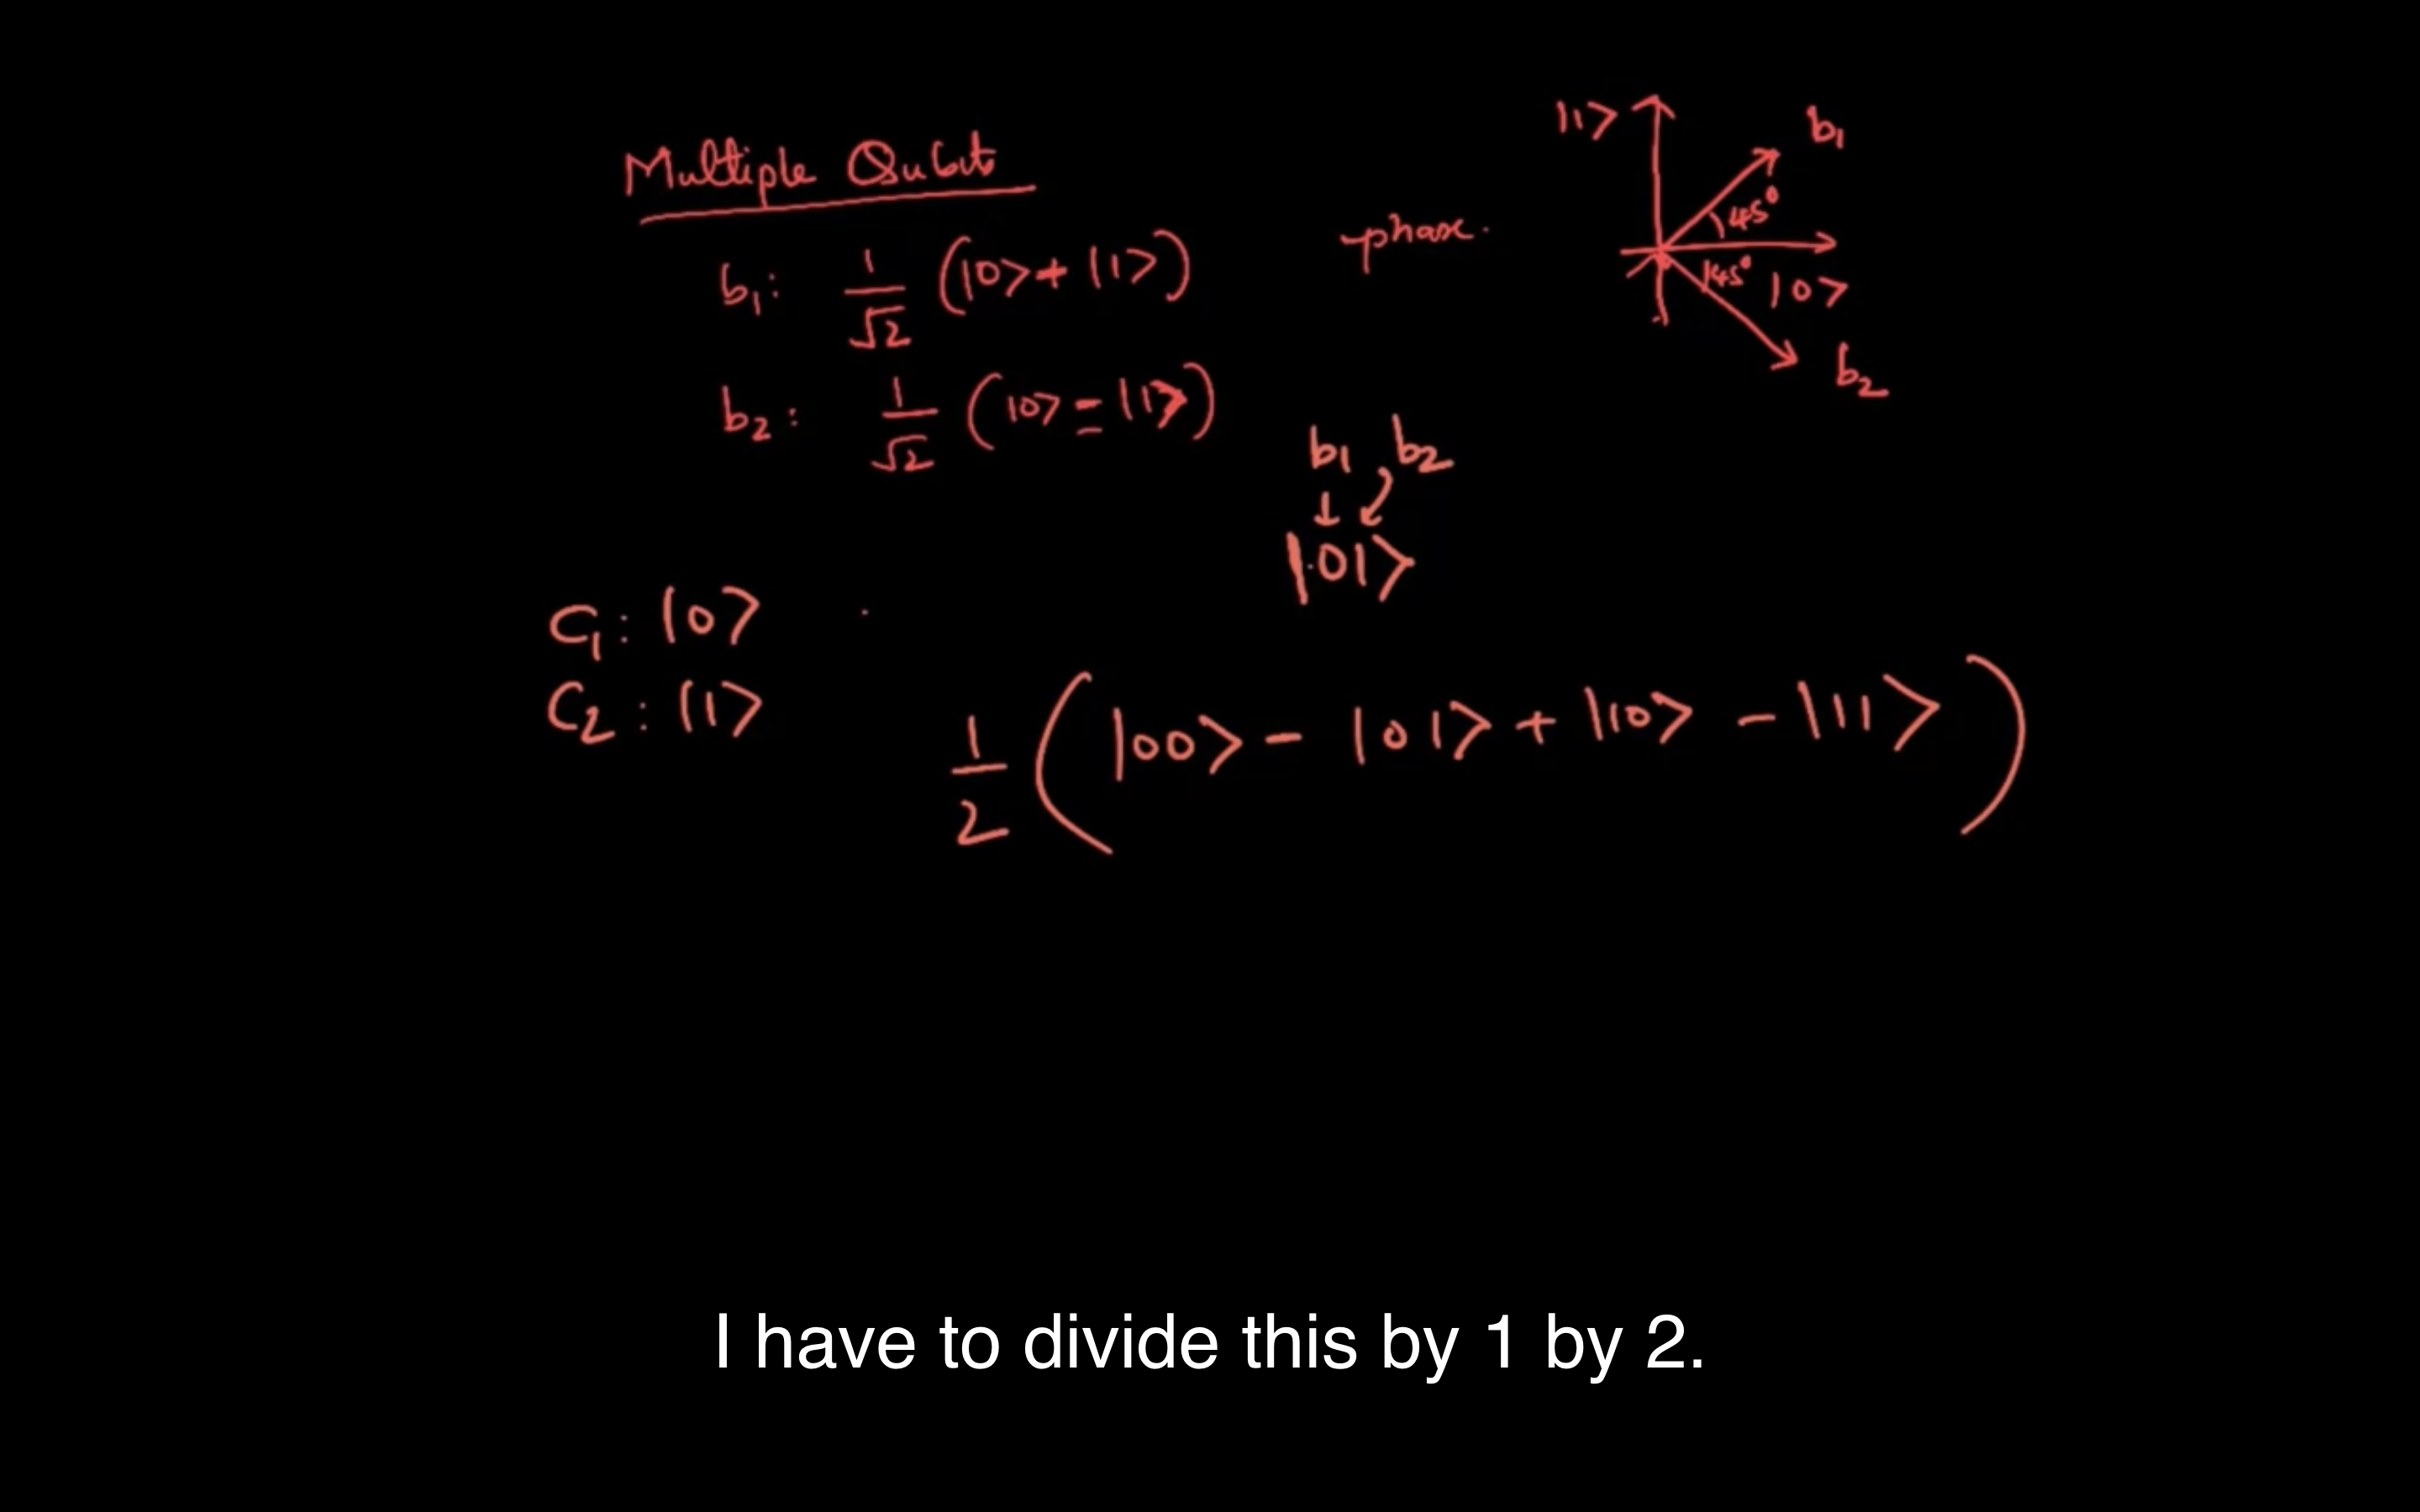 Multiple Qubits
b₁: 1/√2 (|0> + |1>)
phase.
|1>
b₁
45°
45°
|0>
b₂
b₂: 1/√2 (|0> - |1>)
b₁ b₂
|01>
C₁: |0>
C₂: |1>
1/2 (|00> - |01> + |10> - |11>)
I have to divide this by 1 by 2.